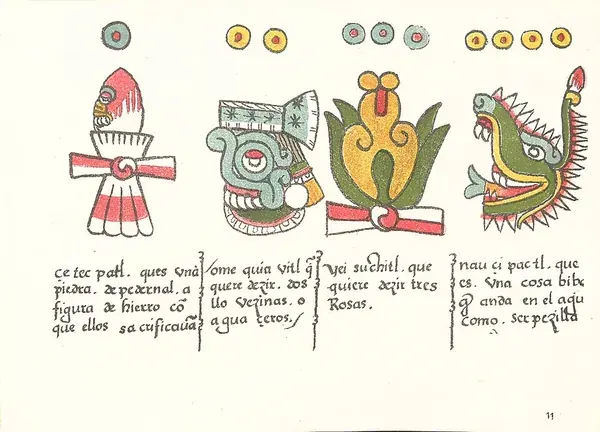 çe tec patl. ques vna
piedra. de pedernal. a
figura de hierro cō
que ellos sacrificauā
ome quia vitl q̄
quiere dezir. dos
llo vezinas. o
agua çeros.
yei suchitl. que
quiere dezir tres
Rosas.
nau ci pactl. que
es. vna cosa bibe
q̄ anda en el agu
como. serpezilla
11